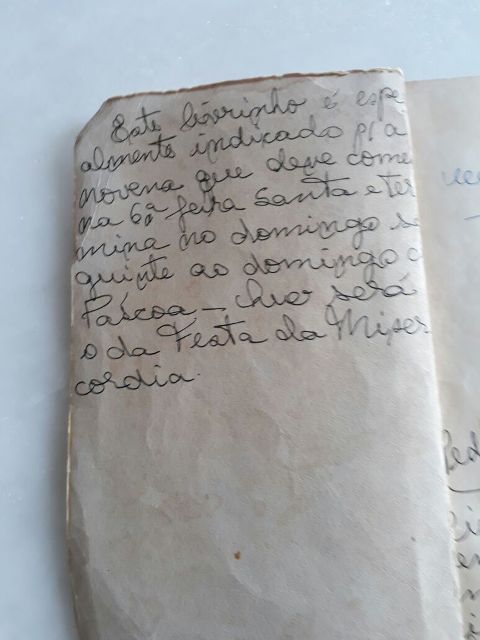 Este livrinho é espe
almente indicado p/ a
novena que deve come
na 6ª feira Santa e ter
mina no domingo se
guinte ao domingo d
Páscoa — será
o da Festa da Miser
cordia.